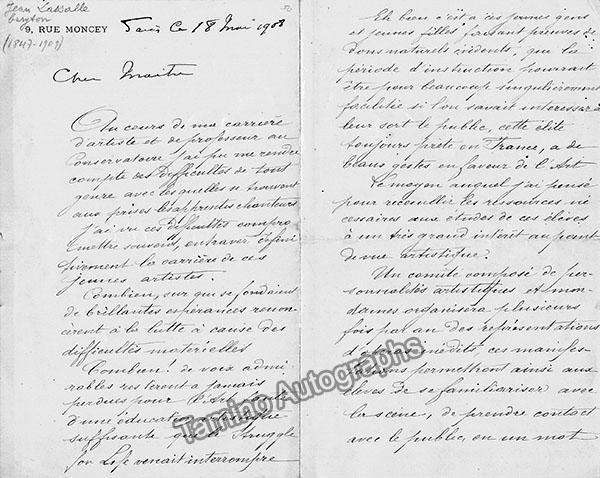 Jean Lasalle
baryton
(1847-1909)
9, RUE MONCEY
Paris Le 18 Mai 1908
Cher Maitre
Au cours de ma carrière
d'artiste et de professeur au
Conservatoire j'ai pu me rendre
compte des difficultés de tout
genre avec lesquelles se trouvent
aux prises les apprentis chanteurs
j'ai vu ces difficultés compro
mettre souvent, entraver défini
tivement la carrière de ces
jeunes artistes.
Combien, sur qui se fondaient
de brillantes espérances renon-
cèrent à la lutte à cause des
difficultés matérielles
Combien! de voix admi
rables resteront à jamais
perdues pour l'Art
d'une éducation artistique
suffisante que le Struggle
for Life venait interrompre
Eh bien c'est à ces jeunes gens
et jeunes filles faisant preuve de
dons naturels évidents, que la
période d'instruction pourrait
être pour beaucoup singulièrement
facilitée si l'on savait intéresser à
leur sort le public, cette élite
toujours prête en France, a de
beaux gestes en faveur de l'Art
Le moyen auquel j'ai pensé
pour recueillir les ressources né
cessaires aux études de ces élèves
à un très grand intérêt au point
de vue artistique.
Un comité composé de per-
sonnalités artistiques et mon-
daines organisera plusieurs
fois par an des représentations
d'opéras inédits, ces manifes-
tations permettront ainsi aux
élèves de se familiariser avec
la scène, de prendre contact
avec le public, en un mot
Tamino Autographs